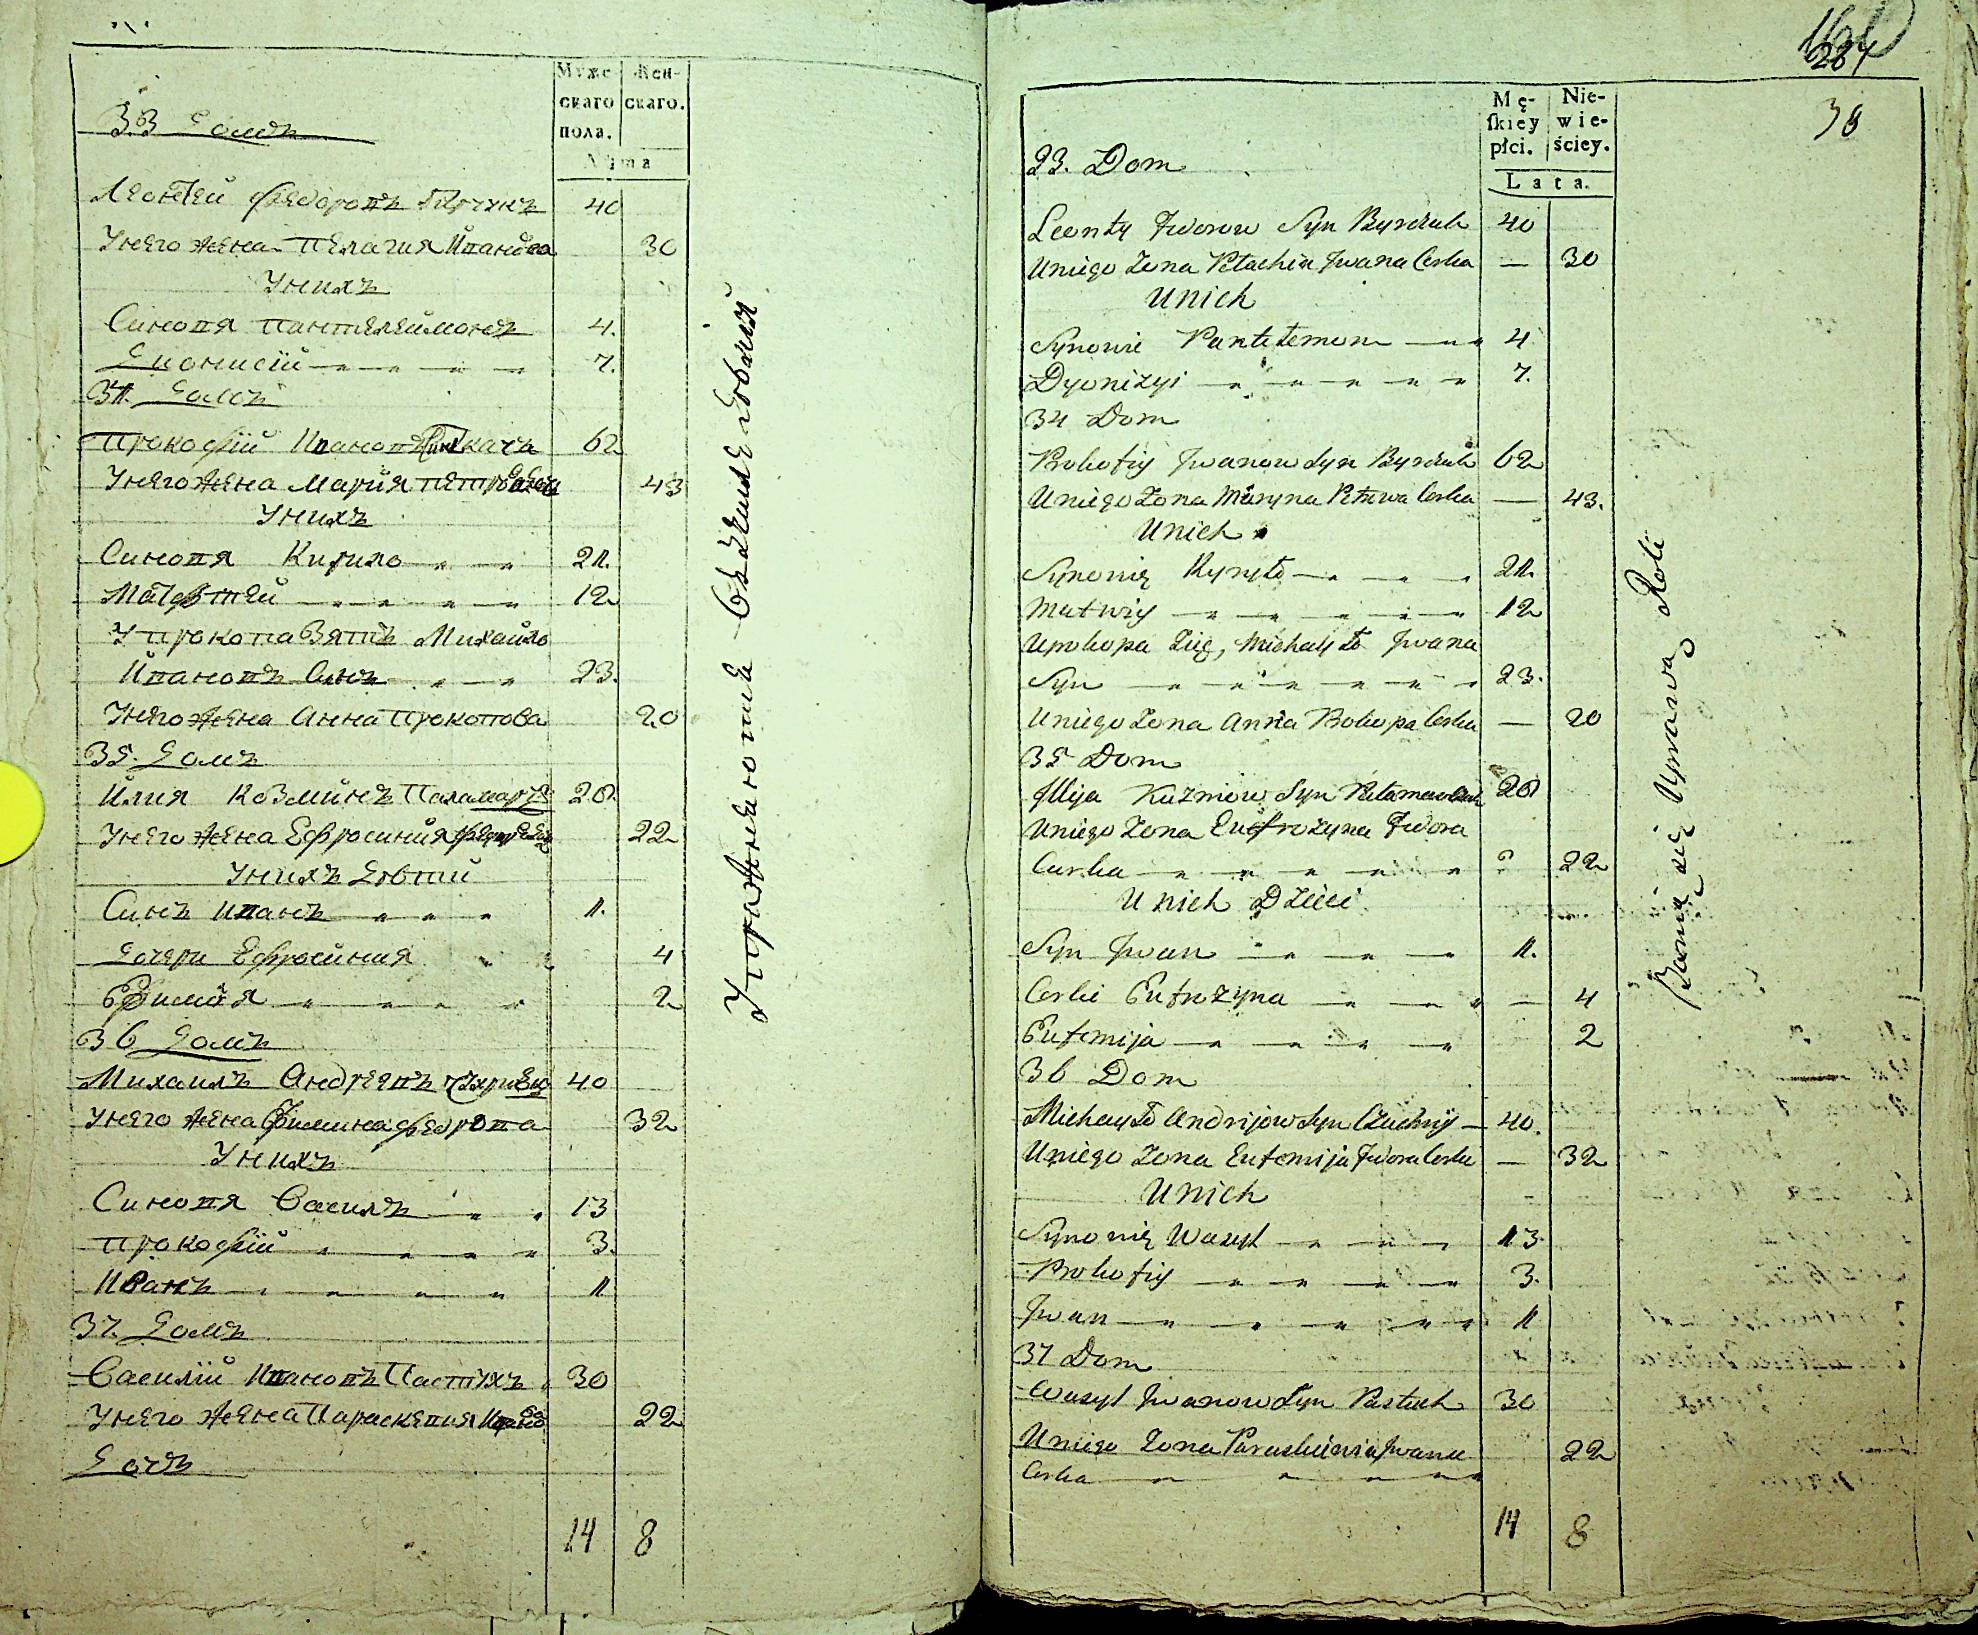 Муже Жен-
скаго скаго.
пола.
Лѣта
33 Домъ
Леонтей Федоровъ 40
Унего жена Пелагия Иванова 30
Унихъ
Синовя Пантелеймонъ 4.
Дионисїй 7.
34. Домъ
Прокофїй Ивановъ 62
Унего жена Мария Петрова 43
Унихъ
Синовя Кирило 21.
Матфтей 12
У Прокопа Зять Михайло
Ивановъ Синъ 23.
Унего жена Анна Прокопова 20
35. Домъ
Илия Козминъ Паламарчу 28.
Унего жена Ефросиния 22
Унихъ Дѣтии
Синъ Иванъ 1.
Дочери Ефросиния 4
Ефимия 2
36 Домъ
Михаилъ Андреевъ 40
Унего жена Федорова 32
Унихъ
Синовя Василъ 13
Прокофїй 3.
Иванъ 1
37. Домъ
Василїй Ивановъ Пастухъ 30
Унего жена Параскевия 22
Дочъ
14 8
Упражняются
284
38
Mę- Nie-
skiey wie-
płci. ściey.
Lata.
33. Dom
Leonty Fwdorow Syn Byrczuk 40
Uniego Zona Pelachia Jwana Corka — 30
Unich
Synowie Pantelemon 4
Dyonizyi 7.
34 Dom
Prokofiy Jwanow Syn Byrczuk 62
Uniego Zona Maryna Petrowa Corka — 43.
Unich
Synowię Kyryło 21.
Matwiy 12
Uprokopa Zię, Michayło Jwana
Syn 23.
Uniego Zona Anna Prokopa Corka — 20
35 Dom
Jllija Kuzmiow Syn 28
Uniego Zona Eufrozyna Fwdora
Curka 22
Unich Dzieci
Syn Jwan 1.
Corki Eufrozyna — 4
Eufemija 2
36 Dom
Michayło Andrijow Syn Czuchriy — 40.
Uniego Zona Eufemija Fwdora Corka — 32
Unich
Synowię Wasyl 13
Prokofiy 3.
Jwan 1
37 Dom
Wasyl Jwanow Syn Pastuch 30
Uniego Zona Paraskiewia Jwana 22
Corka
14 8
Bawią się Uprawą Roli